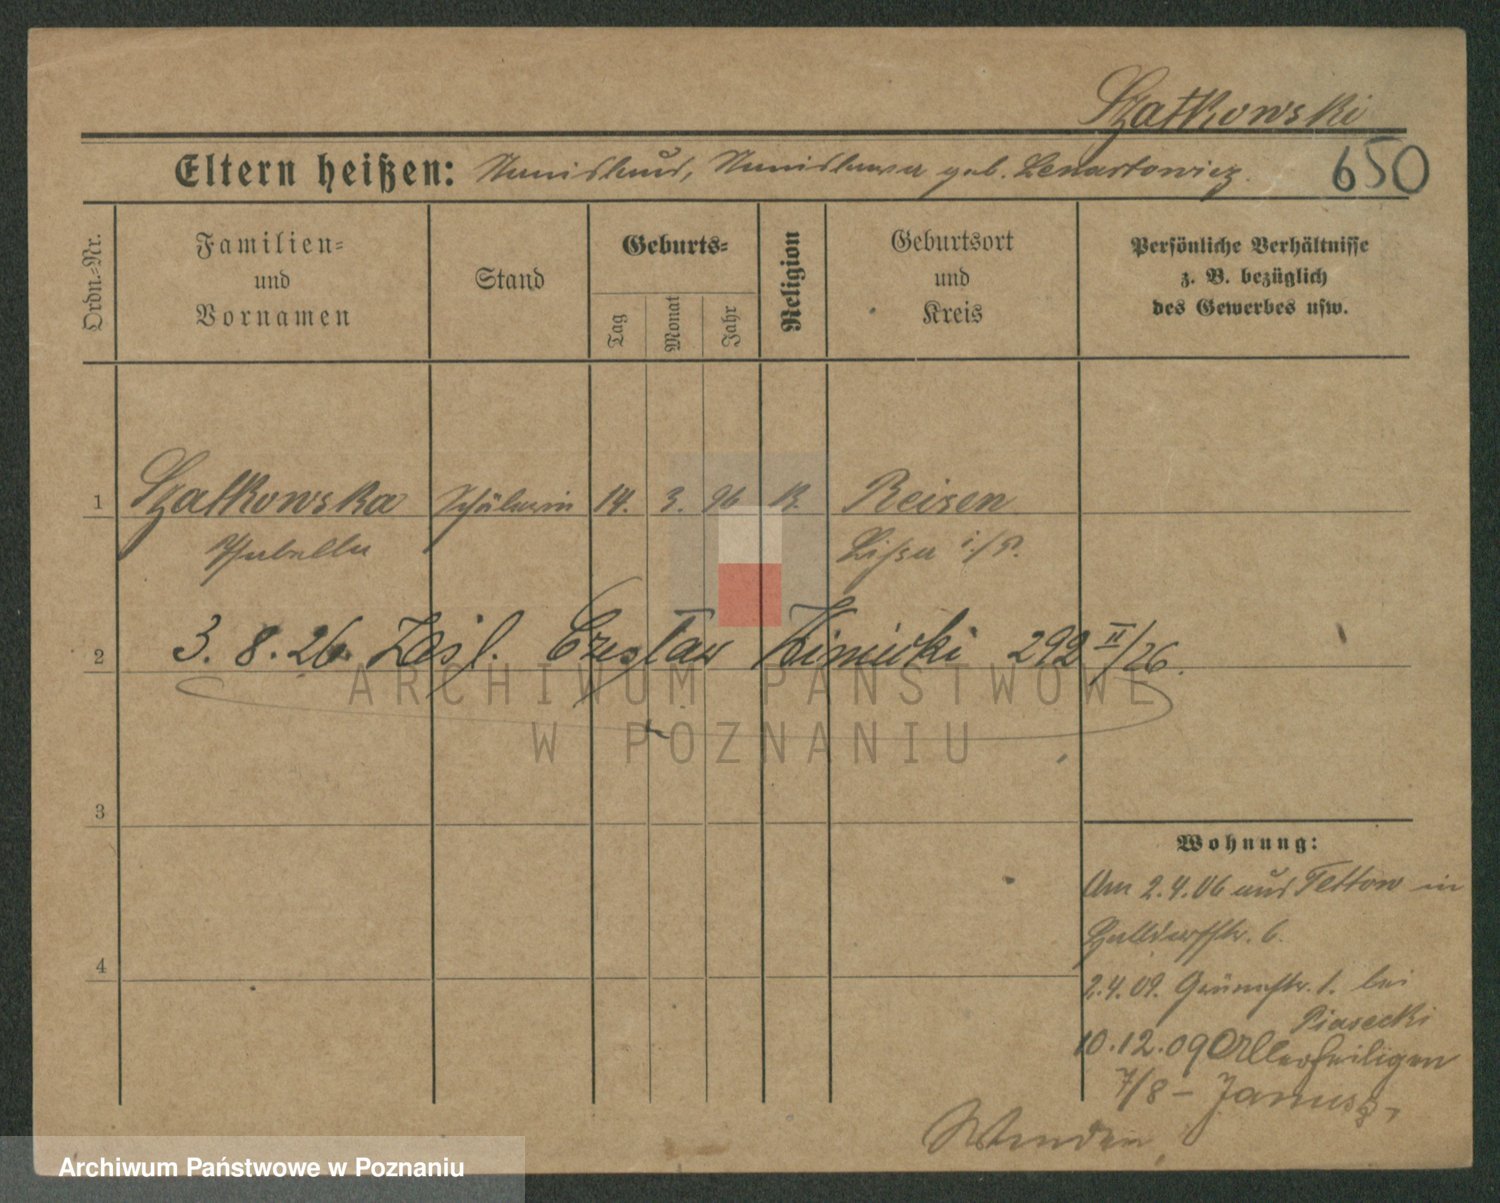 Szatkowski
Eltern heißen: Stanislaus, Stanislawa geb. Lenartowicz. 650
Ordn.-Nr.
Familien-
und
Vornamen
Stand
Geburts-
Tag
Monat
Jahr
Religion
Geburtsort
und
Kreis
Persönliche Verhältnisse
z. B. bezüglich
des Gewerbes usw.
1 Szatkowska Schülerin 14. 3. 96 K. Reisen
Isabella Lissa i/P.
2 3. 8. 26. Zaśl. Czesław 292 II/26.
3
4
Wohnung:
Am 2.4.06 aus Tettow in
6.
2.4.09. Grünestr. 1. bei
Piasecki
10.12.09 Allerheiligen
7/8 - Janusz,
Wenden
ARCHIWUM PAŃSTWOWE
W POZNANIU
Archiwum Państwowe w Poznaniu